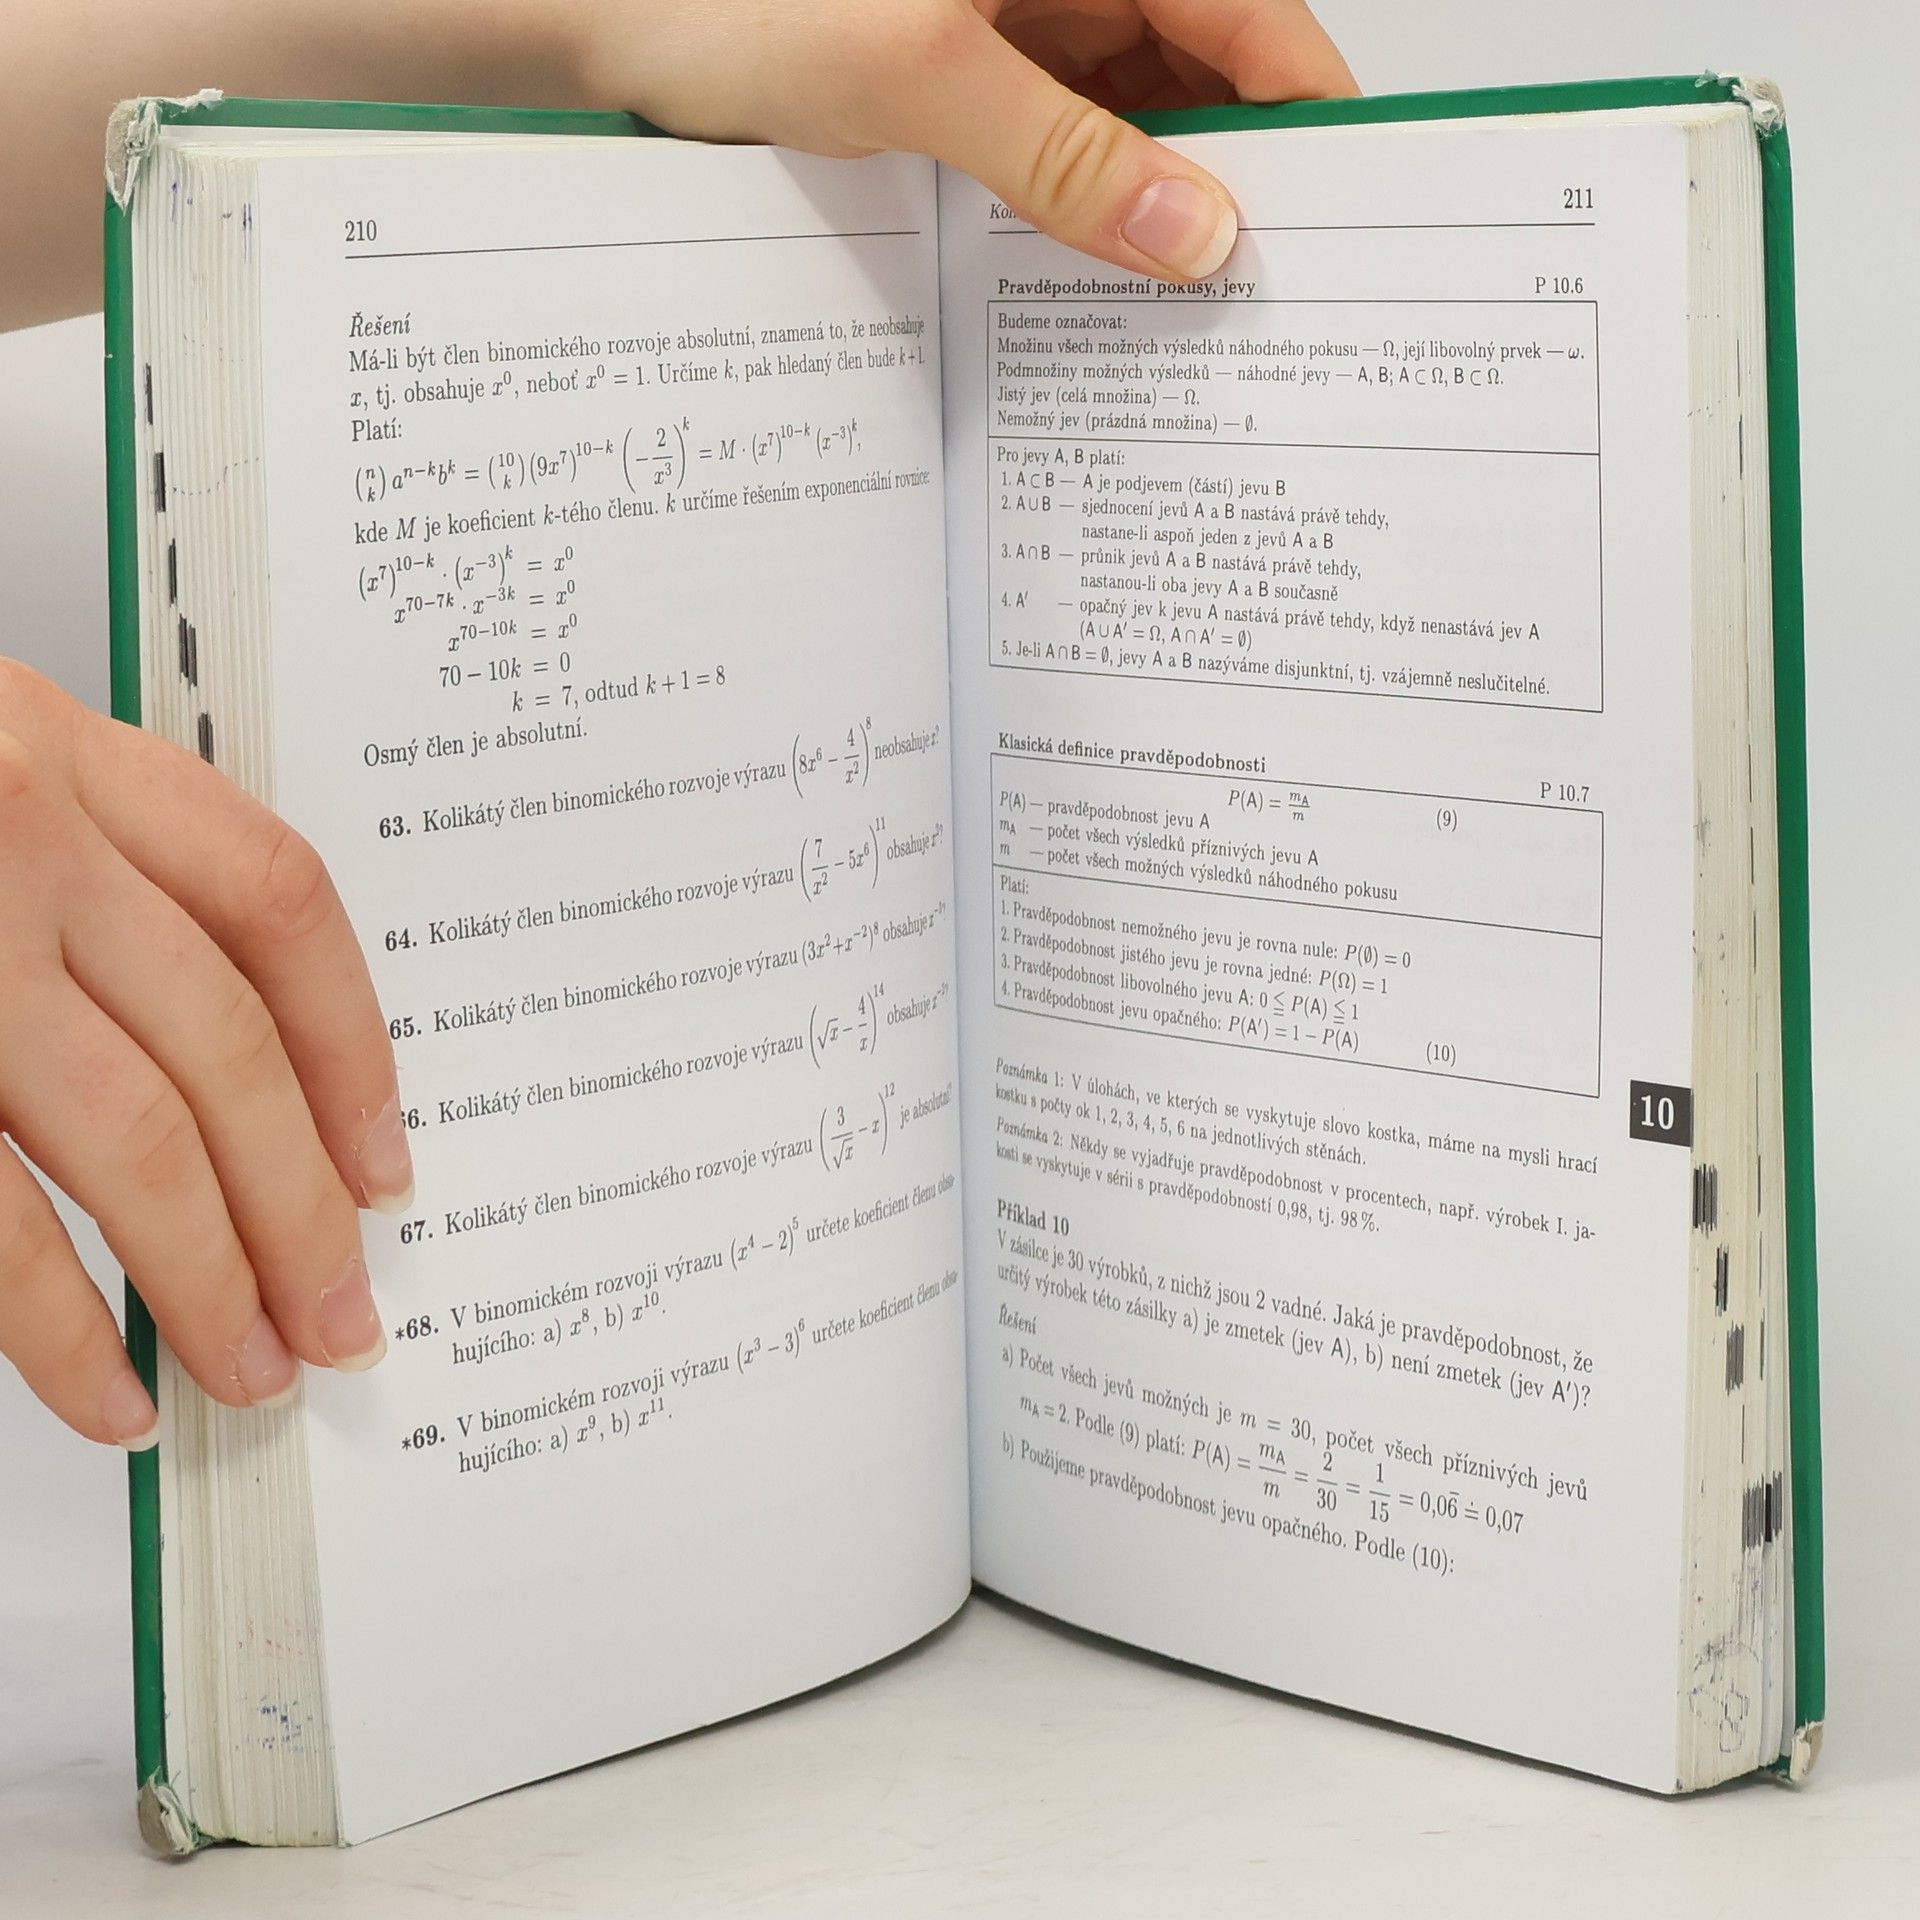 210
Řešení
Má-li být člen binomického rozvoje absolutní, znamená to, že neobsahuje
x, tj. obsahuje x⁰, neboť x⁰ = 1. Určíme k, pak hledaný člen bude k+1.
Platí:
(n k) aⁿ⁻ᵏbᵏ = (10 k)(9x⁷)¹⁰⁻ᵏ (−2/x³)ᵏ = M · (x⁷)¹⁰⁻ᵏ (x⁻³)ᵏ,
kde M je koeficient k-tého členu. k určíme řešením exponenciální rovnice:
(x⁷)¹⁰⁻ᵏ · (x⁻³)ᵏ = x⁰
x⁷⁰⁻⁷ᵏ · x⁻³ᵏ = x⁰
x⁷⁰⁻¹⁰ᵏ = x⁰
70 − 10k = 0
k = 7, odtud k + 1 = 8
Osmý člen je absolutní.
63. Kolikátý člen binomického rozvoje výrazu (8x⁶ − 4/x²)⁸ neobsahuje x?
64. Kolikátý člen binomického rozvoje výrazu (7/x² − 5x⁶)¹¹ obsahuje
65. Kolikátý člen binomického rozvoje výrazu (3x²+x⁻²)⁸ obsahuje
6. Kolikátý člen binomického rozvoje výrazu (√x − 4/x)¹⁴ obsahuje
67. Kolikátý člen binomického rozvoje výrazu (3/√x − x)¹² je absolutní?
*68. V binomickém rozvoji výrazu (x⁴ − 2)⁵ určete koeficient členu obsa-
hujícího: a) x⁸, b) x¹⁰.
*69. V binomickém rozvoji výrazu (x³ − 3)⁶ určete koeficient členu obsa-
hujícího: a) x⁹, b) x¹¹.
211
Pravděpodobnostní pokusy, jevy P 10.6
Budeme označovat:
Množinu všech možných výsledků náhodného pokusu — Ω, její libovolný prvek — ω.
Podmnožiny možných výsledků — náhodné jevy — A, B; A ⊂ Ω, B ⊂ Ω.
Jistý jev (celá množina) — Ω.
Nemožný jev (prázdná množina) — ∅.
Pro jevy A, B platí:
1. A ⊂ B — A je podjevem (částí) jevu B
2. A ∪ B — sjednocení jevů A a B nastává právě tehdy,
nastane-li aspoň jeden z jevů A a B
3. A ∩ B — průnik jevů A a B nastává právě tehdy,
nastanou-li oba jevy A a B současně
4. A′ — opačný jev k jevu A nastává právě tehdy, když nenastává jev A
(A ∪ A′ = Ω, A ∩ A′ = ∅)
5. Je-li A ∩ B = ∅, jevy A a B nazýváme disjunktní, tj. vzájemně neslučitelné.
Klasická definice pravděpodobnosti P 10.7
P(A) = mA/m (9)
P(A) — pravděpodobnost jevu A
mA — počet všech výsledků příznivých jevu A
m — počet všech možných výsledků náhodného pokusu
Platí:
1. Pravděpodobnost nemožného jevu je rovna nule: P(∅) = 0
2. Pravděpodobnost jistého jevu je rovna jedné: P(Ω) = 1
3. Pravděpodobnost libovolného jevu A: 0 ≦ P(A) ≦ 1
4. Pravděpodobnost jevu opačného: P(A′) = 1 − P(A) (10)
Poznámka 1: V úlohách, ve kterých se vyskytuje slovo kostka, máme na mysli hrací
kostku s počty ok 1, 2, 3, 4, 5, 6 na jednotlivých stěnách.
Poznámka 2: Někdy se vyjadřuje pravděpodobnost v procentech, např. výrobek I. ja-
kosti se vyskytuje v sérii s pravděpodobností 0,98, tj. 98 %.
10
Příklad 10
V zásilce je 30 výrobků, z nichž jsou 2 vadné. Jaká je pravděpodobnost, že
určitý výrobek této zásilky a) je zmetek (jev A), b) není zmetek (jev A′)?
Řešení
a) Počet všech jevů možných je m = 30, počet všech příznivých jevů
mA = 2. Podle (9) platí: P(A) = mA/m = 2/30 = 1/15 = 0,06̅ ≐ 0,07
b) Použijeme pravděpodobnost jevu opačného. Podle (10):